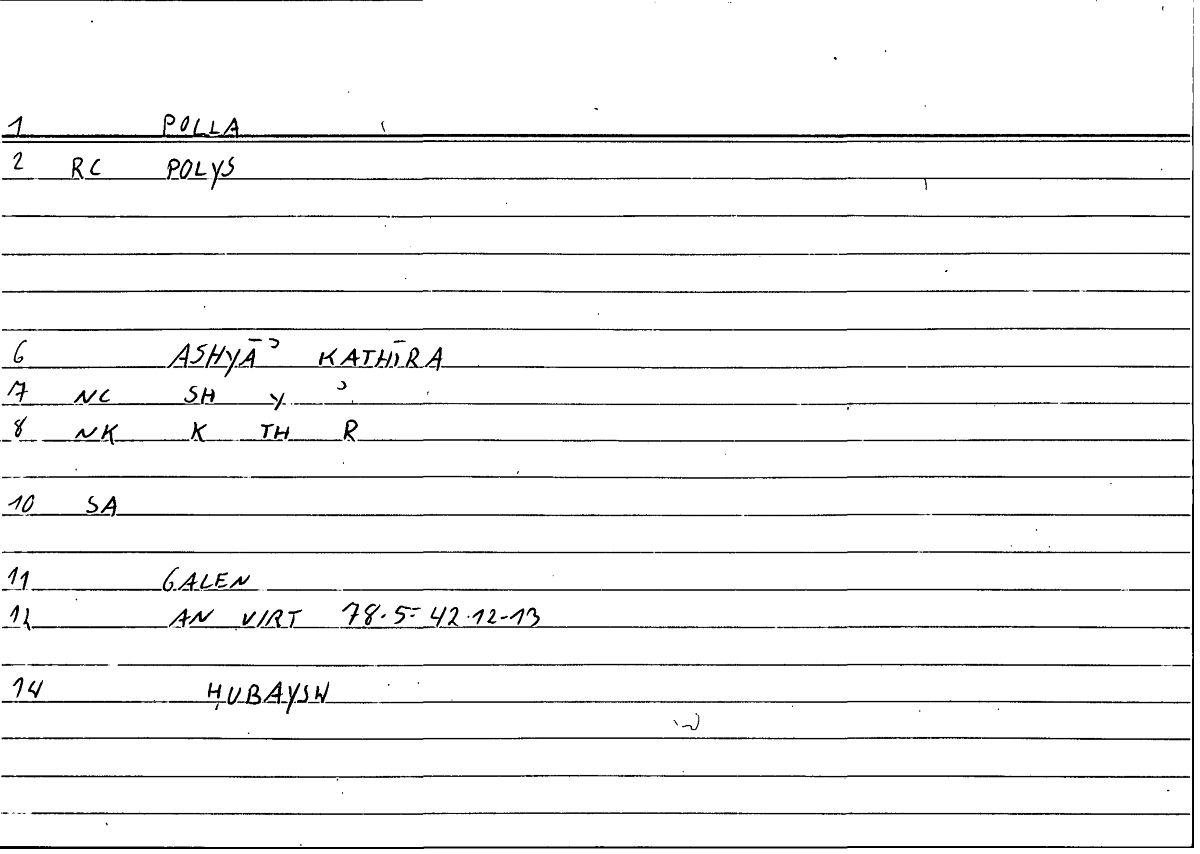 1 POLLA
2 RC POLYS
6 ASHYĀʾ KATHĪRA
7 NC SH Y ʾ
8 NK K TH R
10 SA
11 GALEN
12 AN VIRT 78.5 = 42.12-13
14 ḤUBAYSH